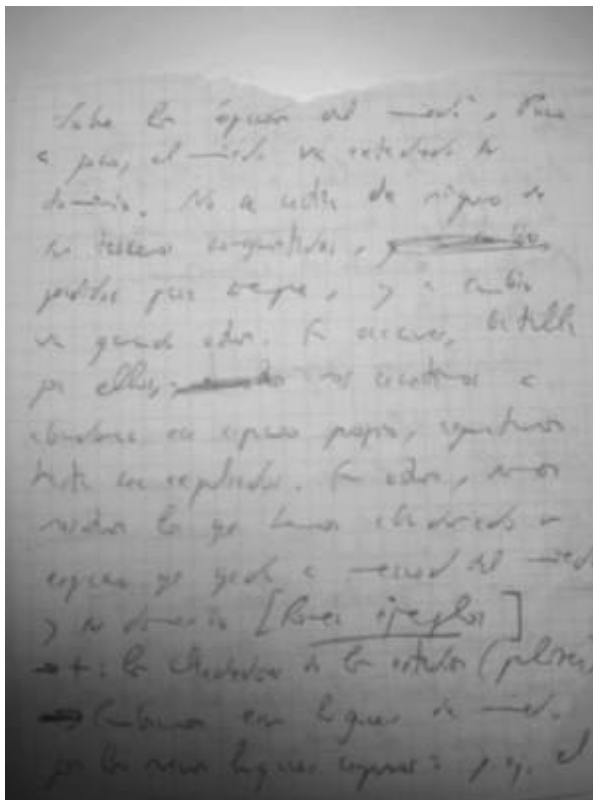 Sobre los espacios del miedo. Poco
a poco, el miedo va extendiendo su
dominio. No se retira de ninguno de
sus terrenos conquistados,
perdidos para siempre, y a cambio
va ganando otros. En ocasiones, batalla
por ellos, nos resistimos a
abandonar ese espacio propio, aguantamos
hasta ser expulsados. En otros, somos
nosotros los que hemos abandonado un
espacio que queda a merced del miedo
y su dominio [Poner ejemplos]
→ + : los alrededores de los estadios (
→ Cambiamos esos lugares de miedo
por los nuevos lugares seguros: p. ej. el